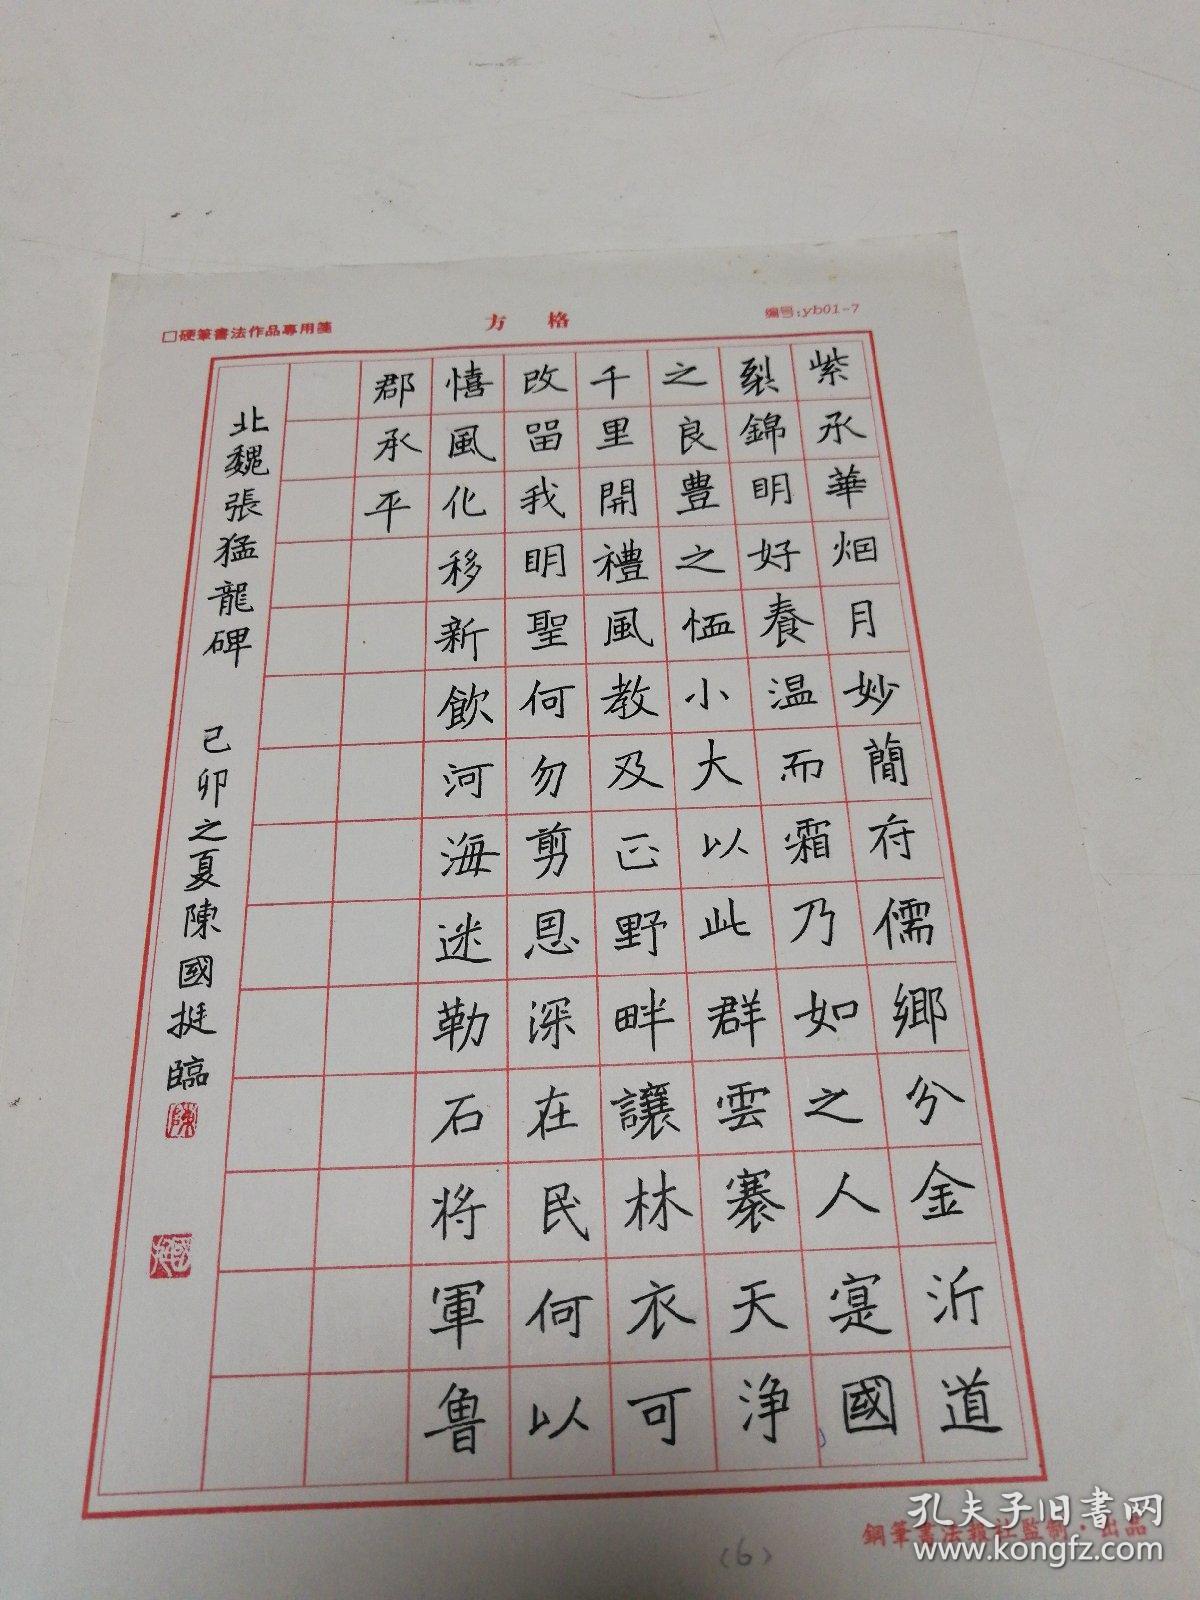 □硬筆書法作品專用箋
方格
编号:yb01-7
紫承華烟月妙簡苻儒鄉分金沂道
裂錦明好養温而霜乃如之人寔國
之良豊之恤小大以此群雲褰天浄
千里開禮風教及正野畔讓林衣可
改留我明聖何勿剪恩深在民何以
憘風化移新飲河海迷勒石将軍魯
郡承平
北魏張猛龍碑 己卯之夏陳國挺臨
陳
國挺
鋼筆書法報社監制·出品
(6)
孔夫子旧書网
www.kongfz.com